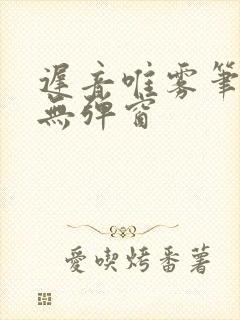 遲音唯雾筆
無弹窗
愛喫烤番薯